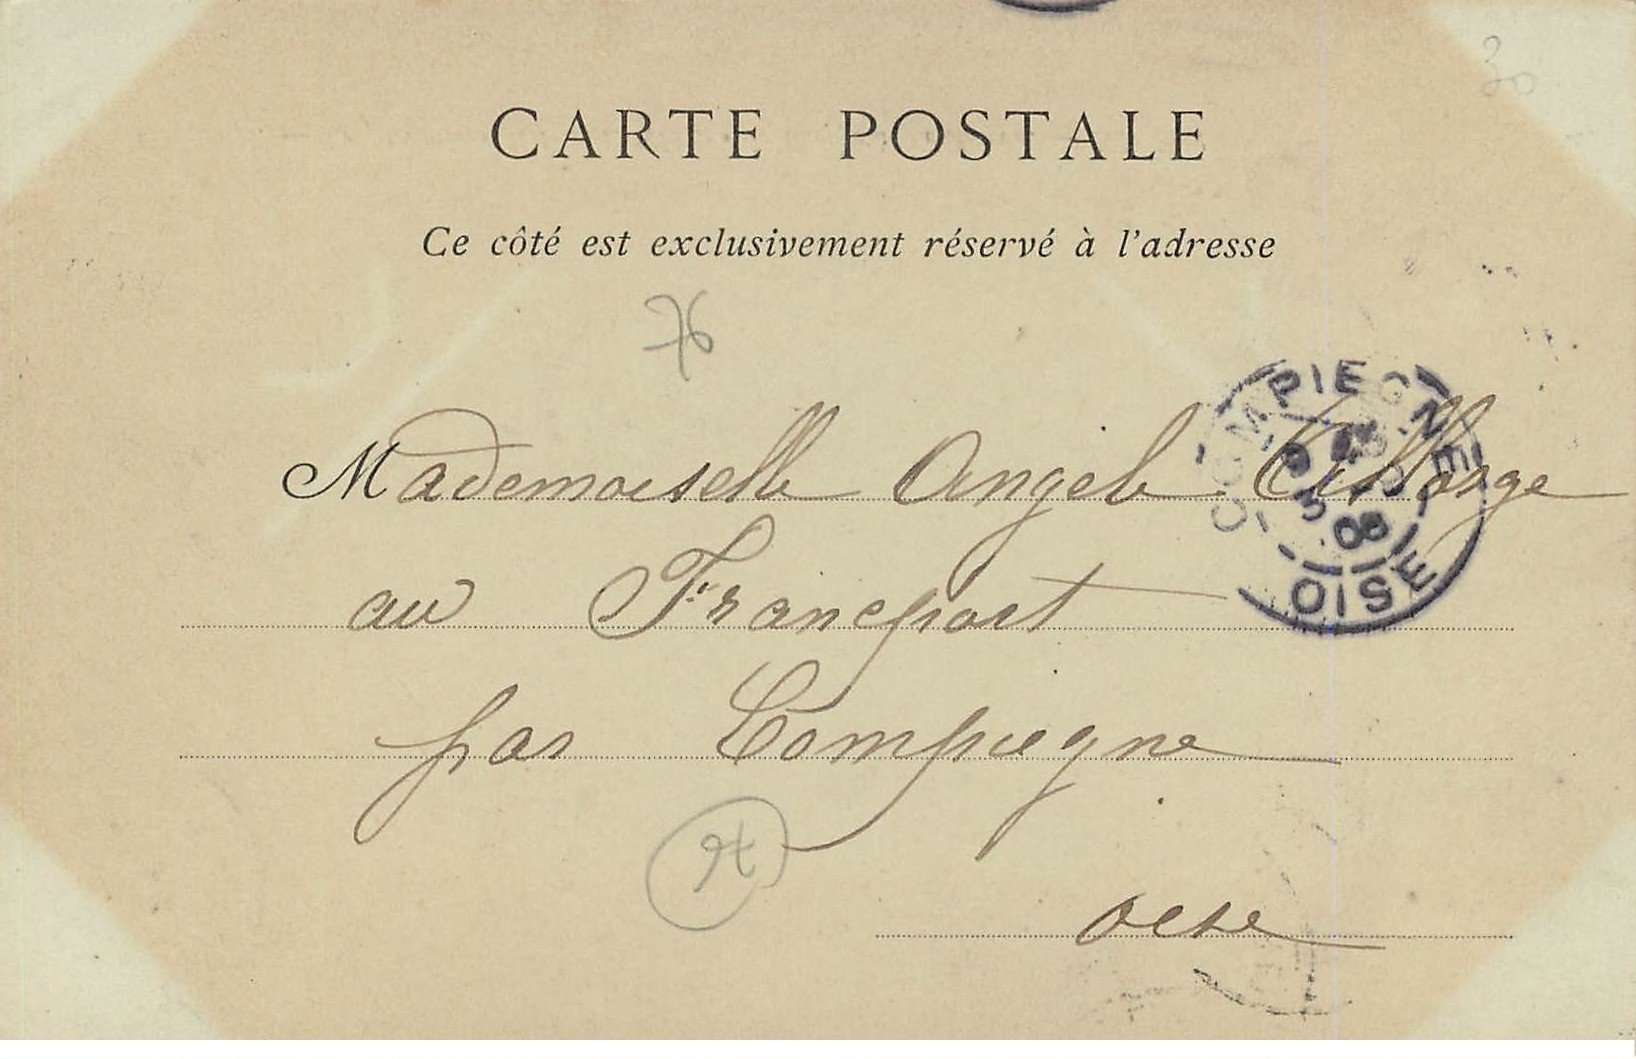 30
CARTE POSTALE
Ce côté est exclusivement réservé à l'adresse
76
Mademoiselle Angele
COMPIEGNE
OISE
au Francport
par Compiegne
oise